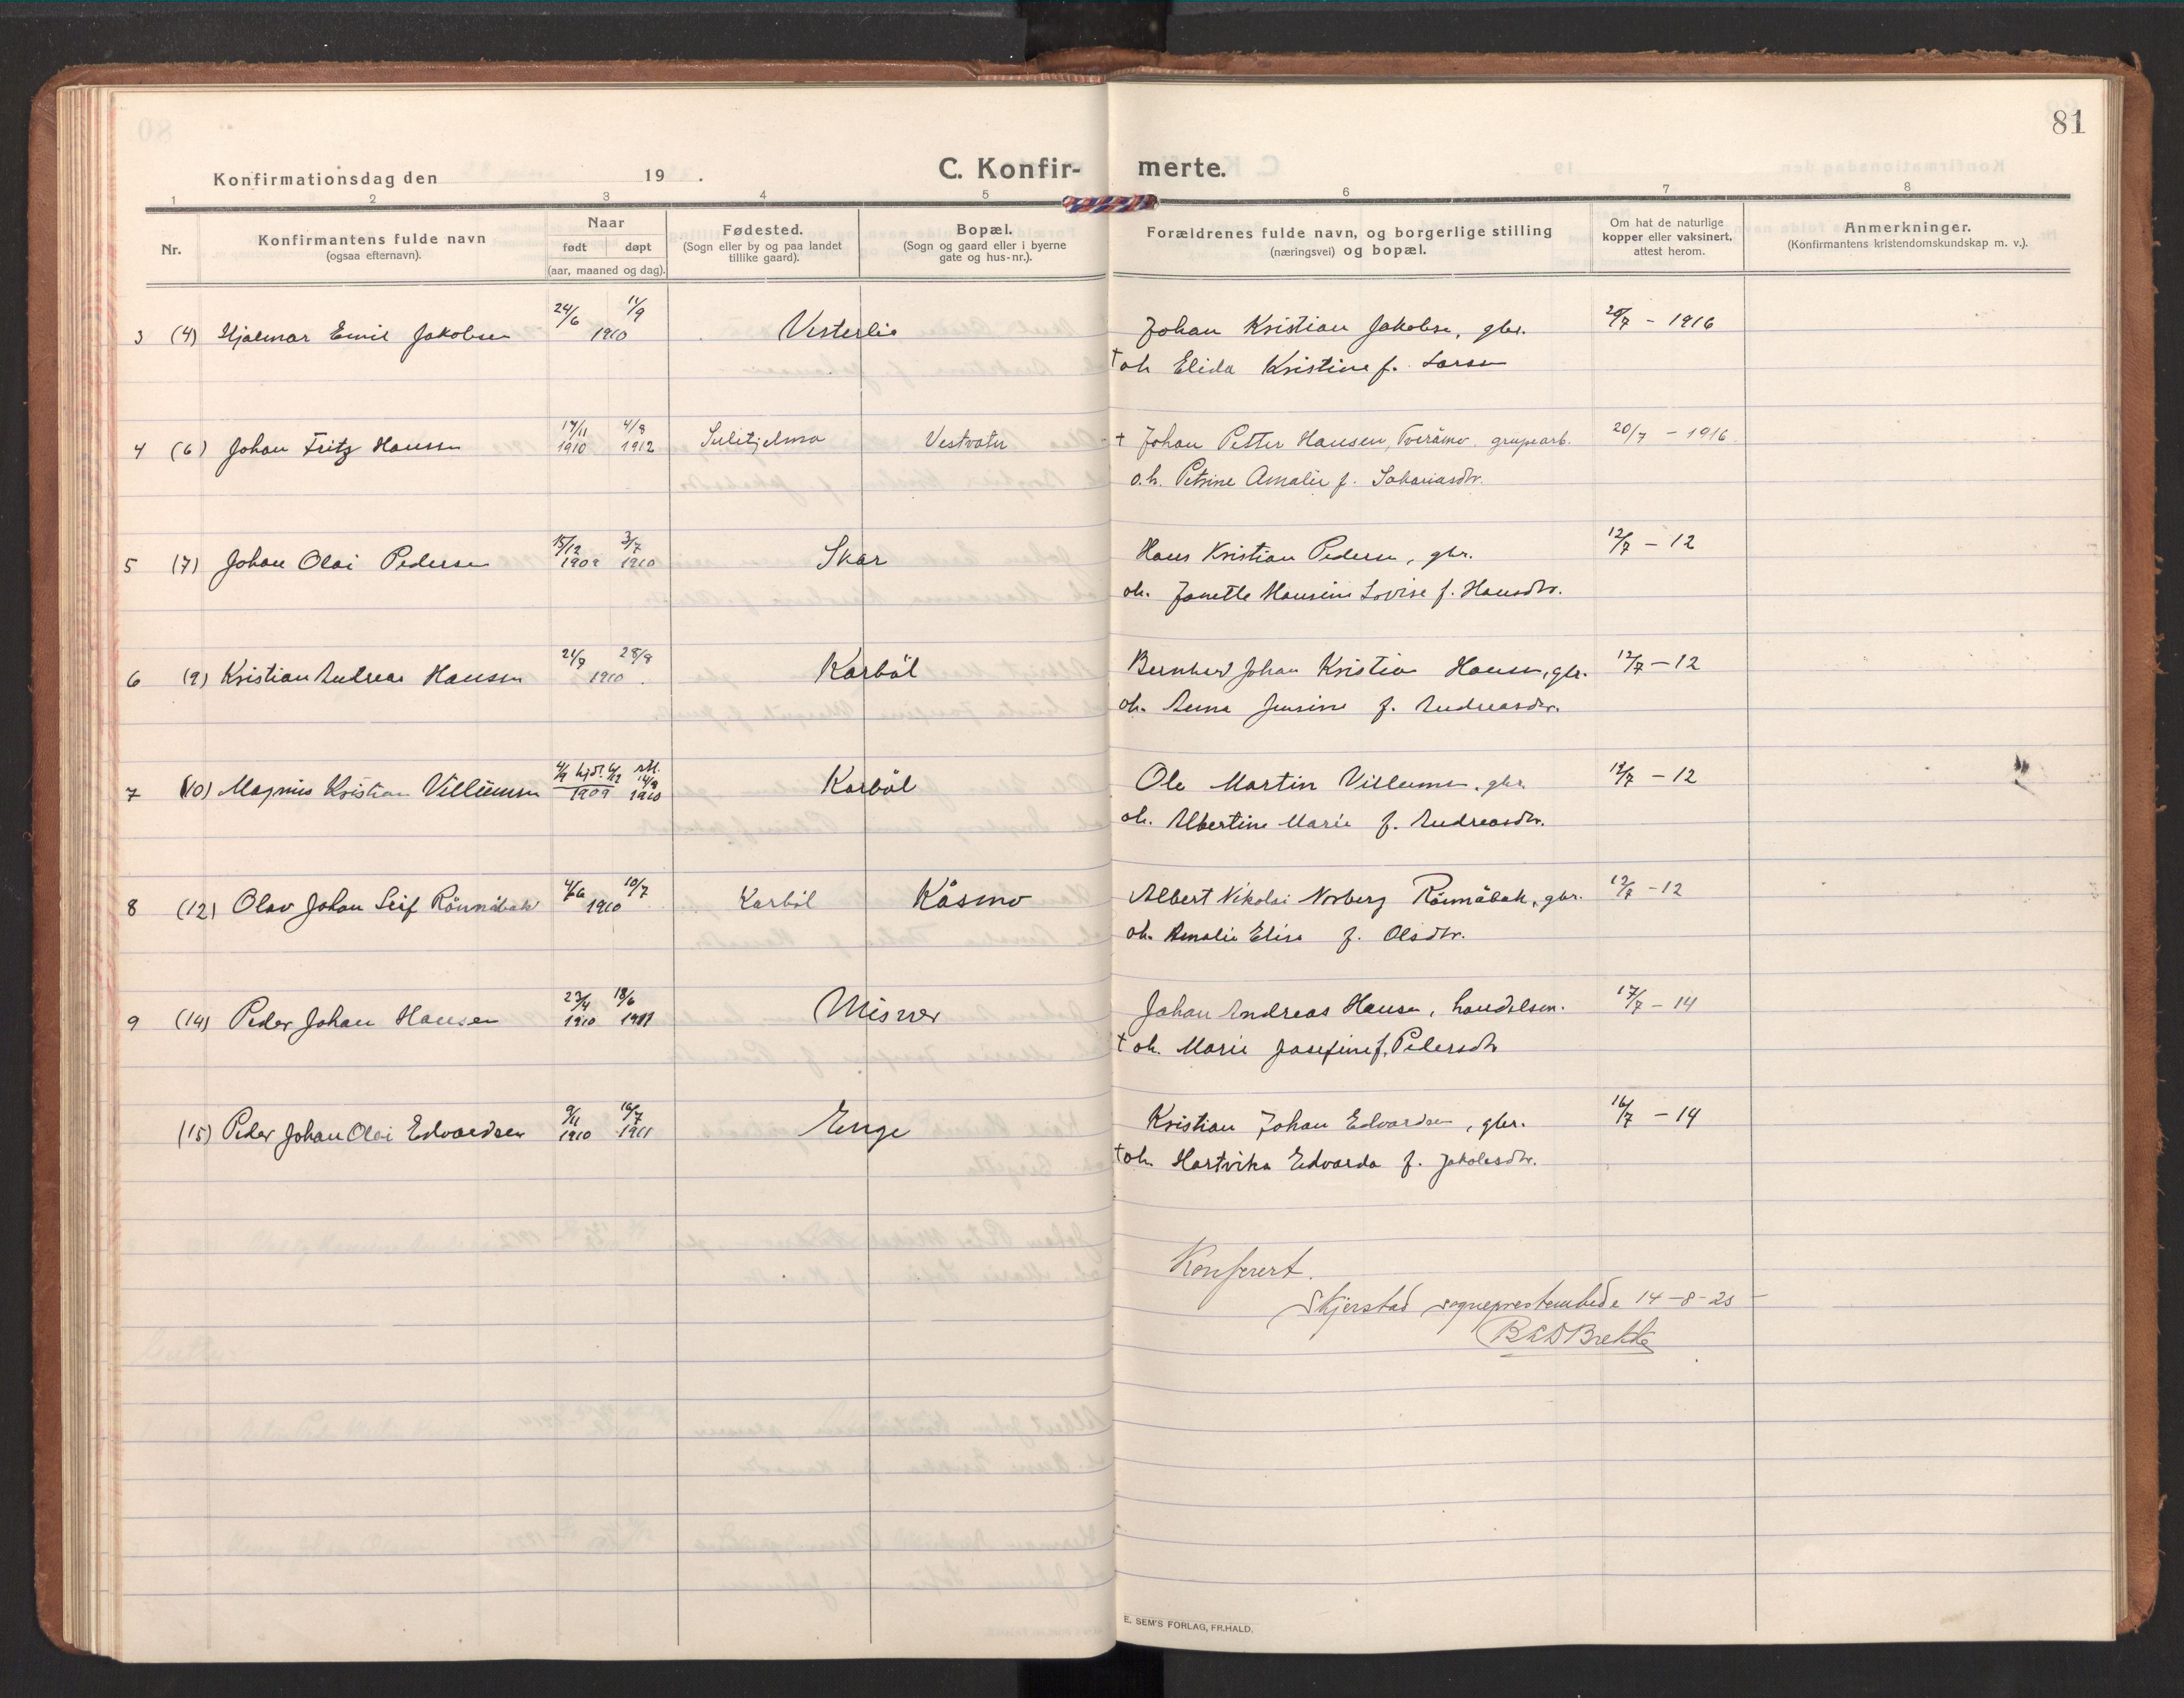 81
C. Konfirmerte.
Konfirmationsdag den 19 .
1 2 3 4 5 6 7 8
Nr.
Konfirmantens fulde navn
(ogsaa efternavn).
Naar
født døpt
(aar, maaned og dag).
Fødested.
(Sogn eller by og paa landet
tillike gaard).
Bopæl.
(Sogn og gaard eller i byerne
gate og hus-nr.).
Forældrenes fulde navn, og borgerlige stilling
(næringsvei) og bopæl.
Om hat de naturlige
kopper eller vaksinert,
attest herom.
Anmerkninger.
(Konfirmantens kristendomskundskap m. v.).
3 (4) Hjalmar Emil Jakobsen 24/6 11/9 1910 Vesterlie Johan Kristian Jakobsen, gbr. 20/7 - 1916
† oh Elida Kristine f. Larsen
4 (6) Johan Fritz Hansen 17/11 1910 4/8 1912 Sulitjelma Vestvatn † Johan Petter Hansen, Tveråmo grupearb. 20/7 - 1916
o.h. Petrine Amalie f. Sakariasdtr.
5 (7) Johan Olai Pedersen 15/12 1909 3/7 1910 Skar Hans Kristian Pedersen, gbr. 12/7 - 12
oh. Janette Hansine Lovise f. Hansdtr.
6 (9) Kristian Andreas Hansen 21/7 28/8 1910 Karbøl Bernhard Johan Kristian Hansen, gbr. 12/7 - 12
oh. Anna Jensine f. Andreasdtr.
7 (10) Magnus Kristian Villumsen 1909 1910 Karbøl Ole Martin Villumsen, gbr. 12/7 - 12
oh. Albertine Marie f. Andreasdtr.
8 (12) Olav Johan Leif Rönnåbakk 4/6 10/7 1910 Karbøl Kåsmo Albert Nikolai Norberg Rönnåbak, gbr. 12/7 - 12
oh. Amalie Elise f. Olsdtr.
9 (14) Peder Johan Hansen 23/4 1910 18/6 1911 Misvær Johan Andreas Hansen, handelsm. 17/7 - 14
† oh. Marie Josefine f. Petersdtr
(15) Peder Johan Olai Edvardsen 9/11 1910 16/7 1911 Enge Kristian Johan Edvardsen, gbr. 16/7 - 14
† oh. Hartvika Edvarda f. Jakobsdtr.
Konferert.
Skjerstad sogneprestembede 14-8-25
Brekke
E. SEM'S FORLAG, FR.HALD.